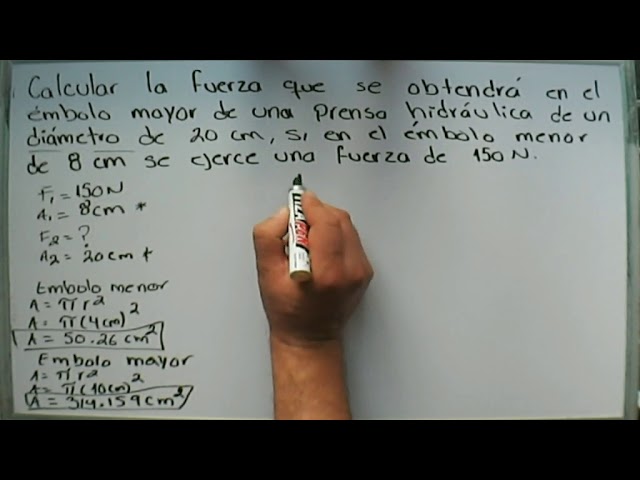 Calcular la fuerza que se obtendrá en el
émbolo mayor de una prensa hidráulica de un
diámetro de 20 cm, si en el émbolo menor
de 8 cm se ejerce una fuerza de 150 N.
F₁ = 150 N
A₁ = 8 cm *
F₂ = ?
A₂ = 20 cm *
Embolo menor
A = π r²
A = π (4 cm)²
A = 50.26 cm²
Embolo mayor
A = π r²
A = π (10 cm)²
A = 314.159 cm²